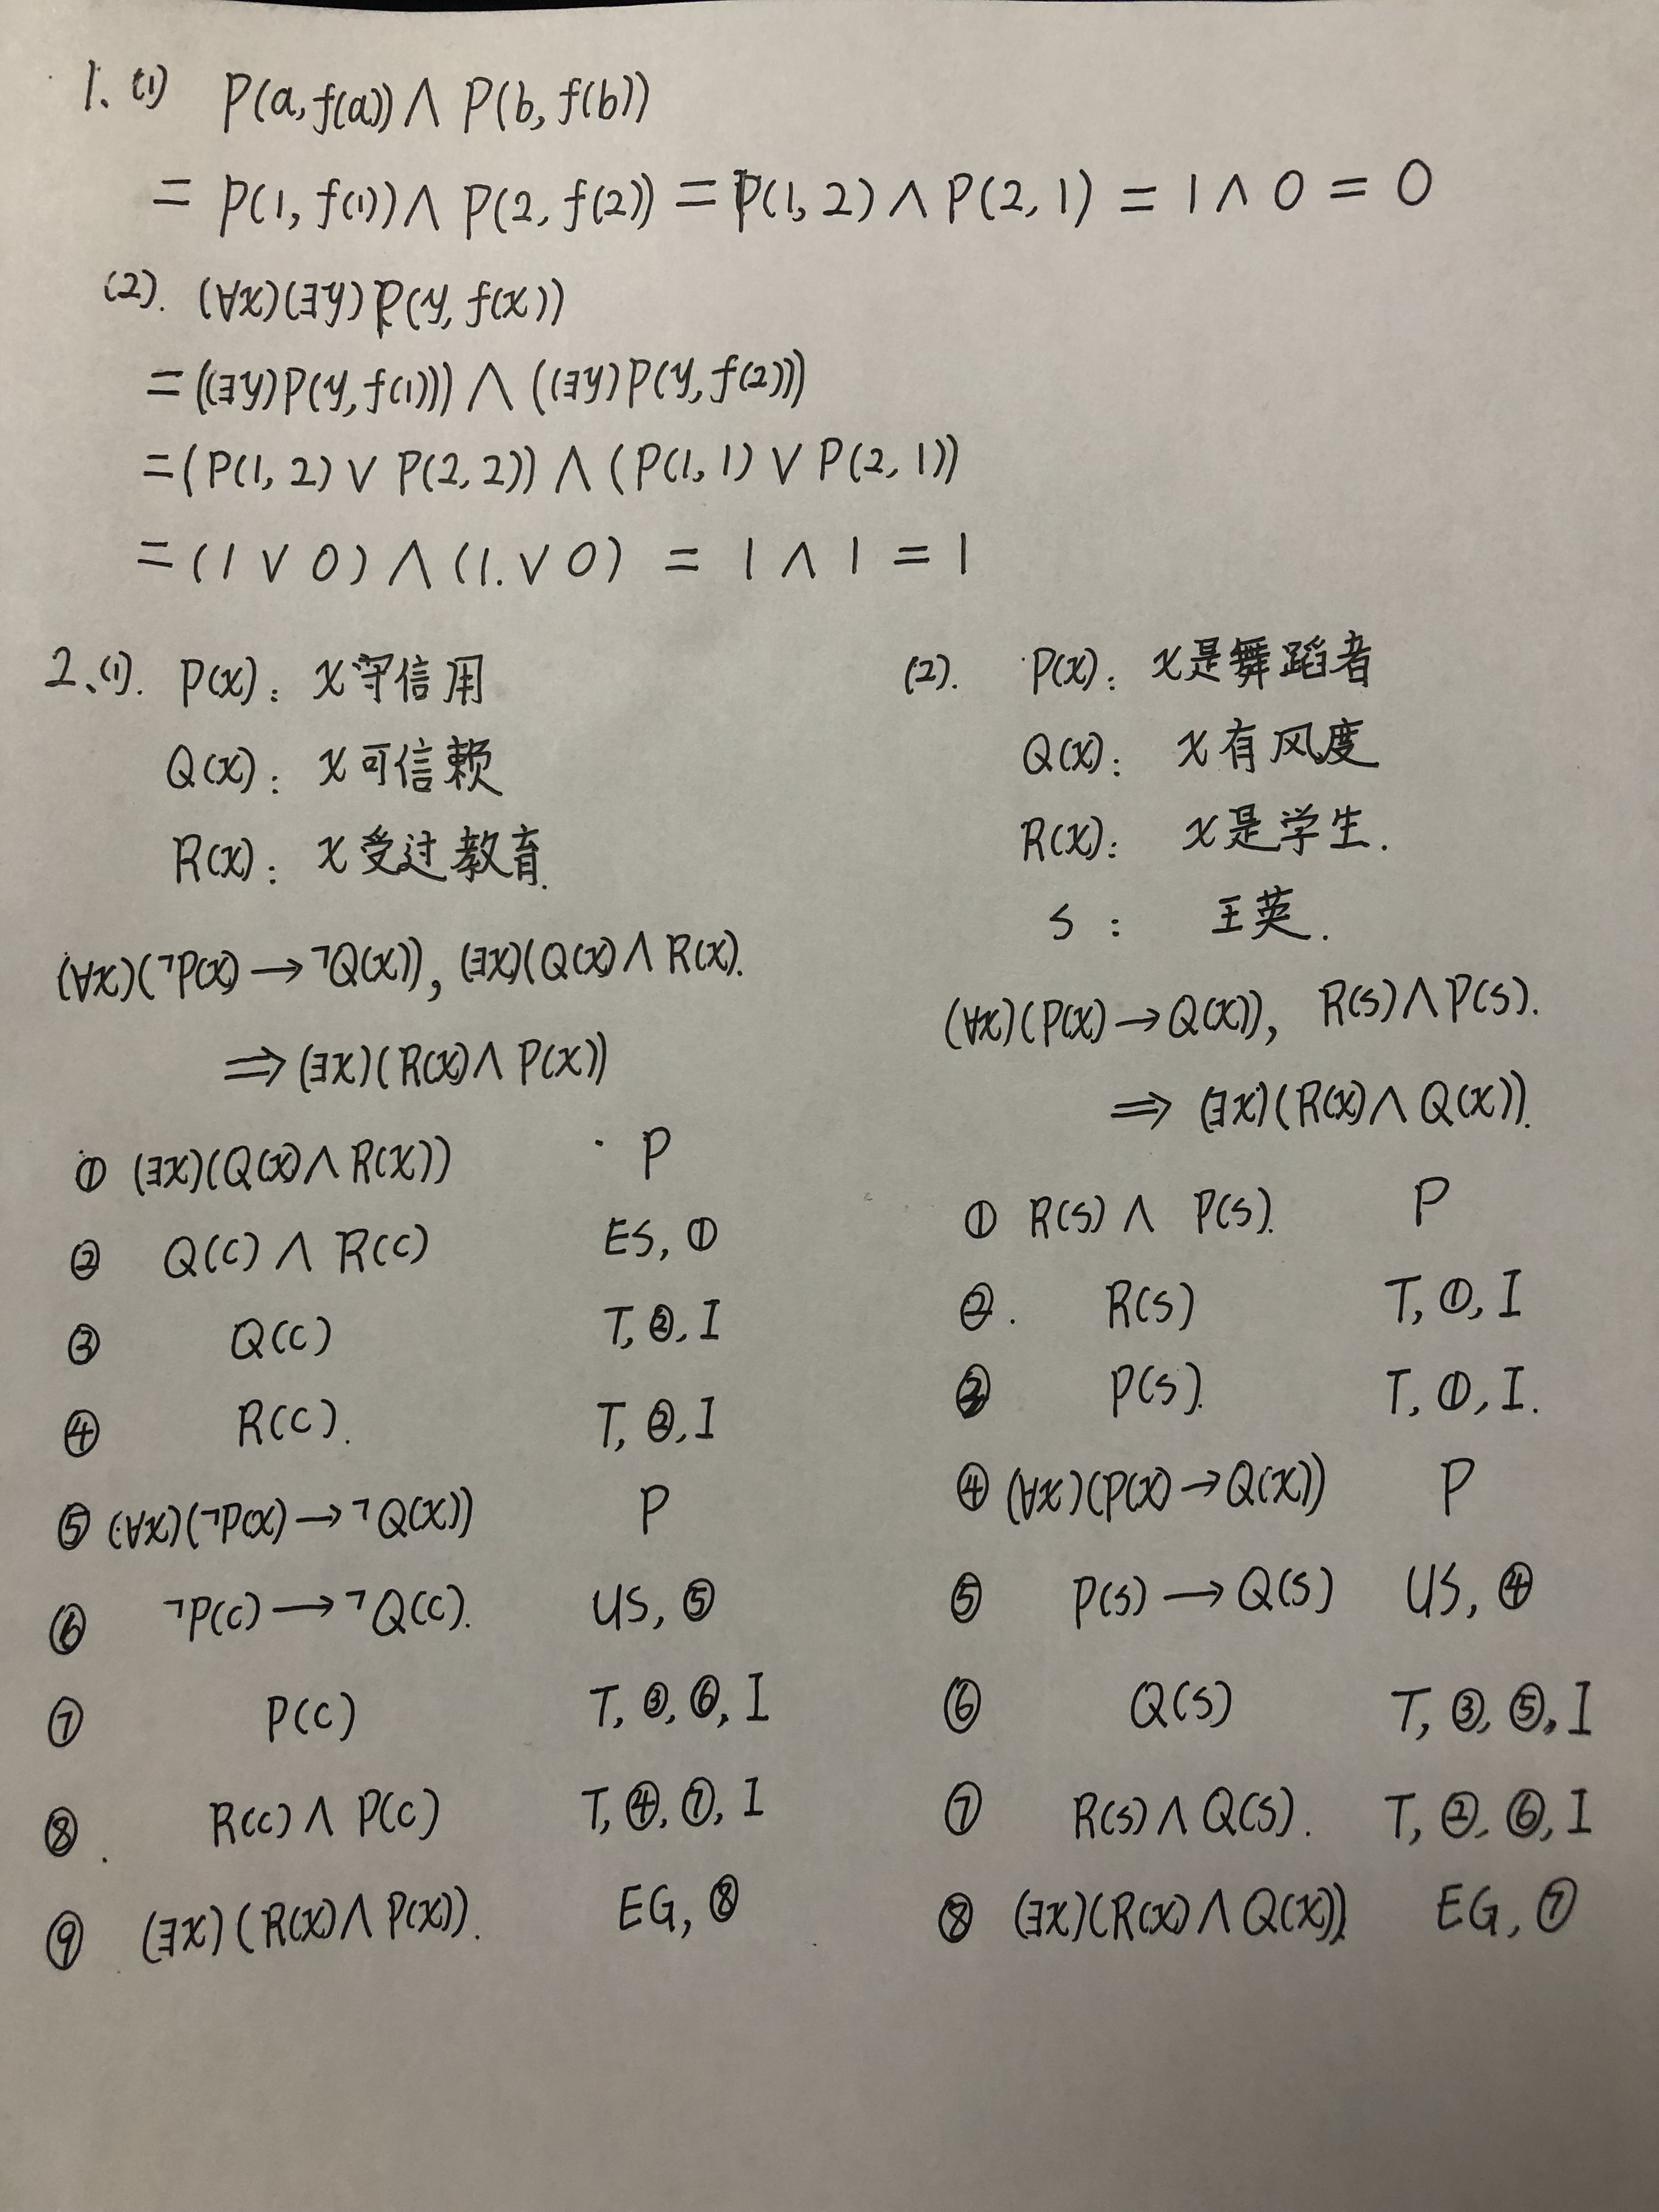 1. (1) P(a, f(a)) ∧ P(b, f(b))
= P(1, f(1)) ∧ P(2, f(2)) = P(1, 2) ∧ P(2, 1) = 1 ∧ 0 = 0
(2). (∀x)(∃y)P(y, f(x))
= ((∃y)P(y, f(1))) ∧ ((∃y)P(y, f(2)))
= (P(1, 2) ∨ P(2, 2)) ∧ (P(1, 1) ∨ P(2, 1))
= (1 ∨ 0) ∧ (1. ∨ 0) = 1 ∧ 1 = 1
2、(1). P(x): x守信用
Q(x): x可信赖
R(x): x受过教育.
(∀x)(¬P(x) → ¬Q(x)), (∃x)(Q(x) ∧ R(x).
⇒ (∃x)(R(x) ∧ P(x))
① (∃x)(Q(x) ∧ R(x)) P
② Q(c) ∧ R(c) ES, ①
③ Q(c) T, ②, I
④ R(c). T, ②, I
⑤ (∀x)(¬P(x) → ¬Q(x)) P
⑥ ¬P(c) → ¬Q(c). US, ⑤
⑦ P(c) T, ③, ⑥, I
⑧. R(c) ∧ P(c) T, ④, ⑦, I
⑨ (∃x)(R(x) ∧ P(x)). EG, ⑧
(2). P(x): x是舞蹈者
Q(x): x有风度
R(x): x是学生.
s: 王英.
(∀x)(P(x) → Q(x)), R(s) ∧ P(s).
⇒ (∃x)(R(x) ∧ Q(x)).
① R(s) ∧ P(s). P
②. R(s) T, ①, I
③ P(s). T, ①, I.
④ (∀x)(P(x) → Q(x)) P
⑤ P(s) → Q(s) US, ④
⑥ Q(s) T, ③, ⑤, I
⑦ R(s) ∧ Q(s). T, ②, ⑥, I
⑧ (∃x)(R(x) ∧ Q(x)) EG, ⑦